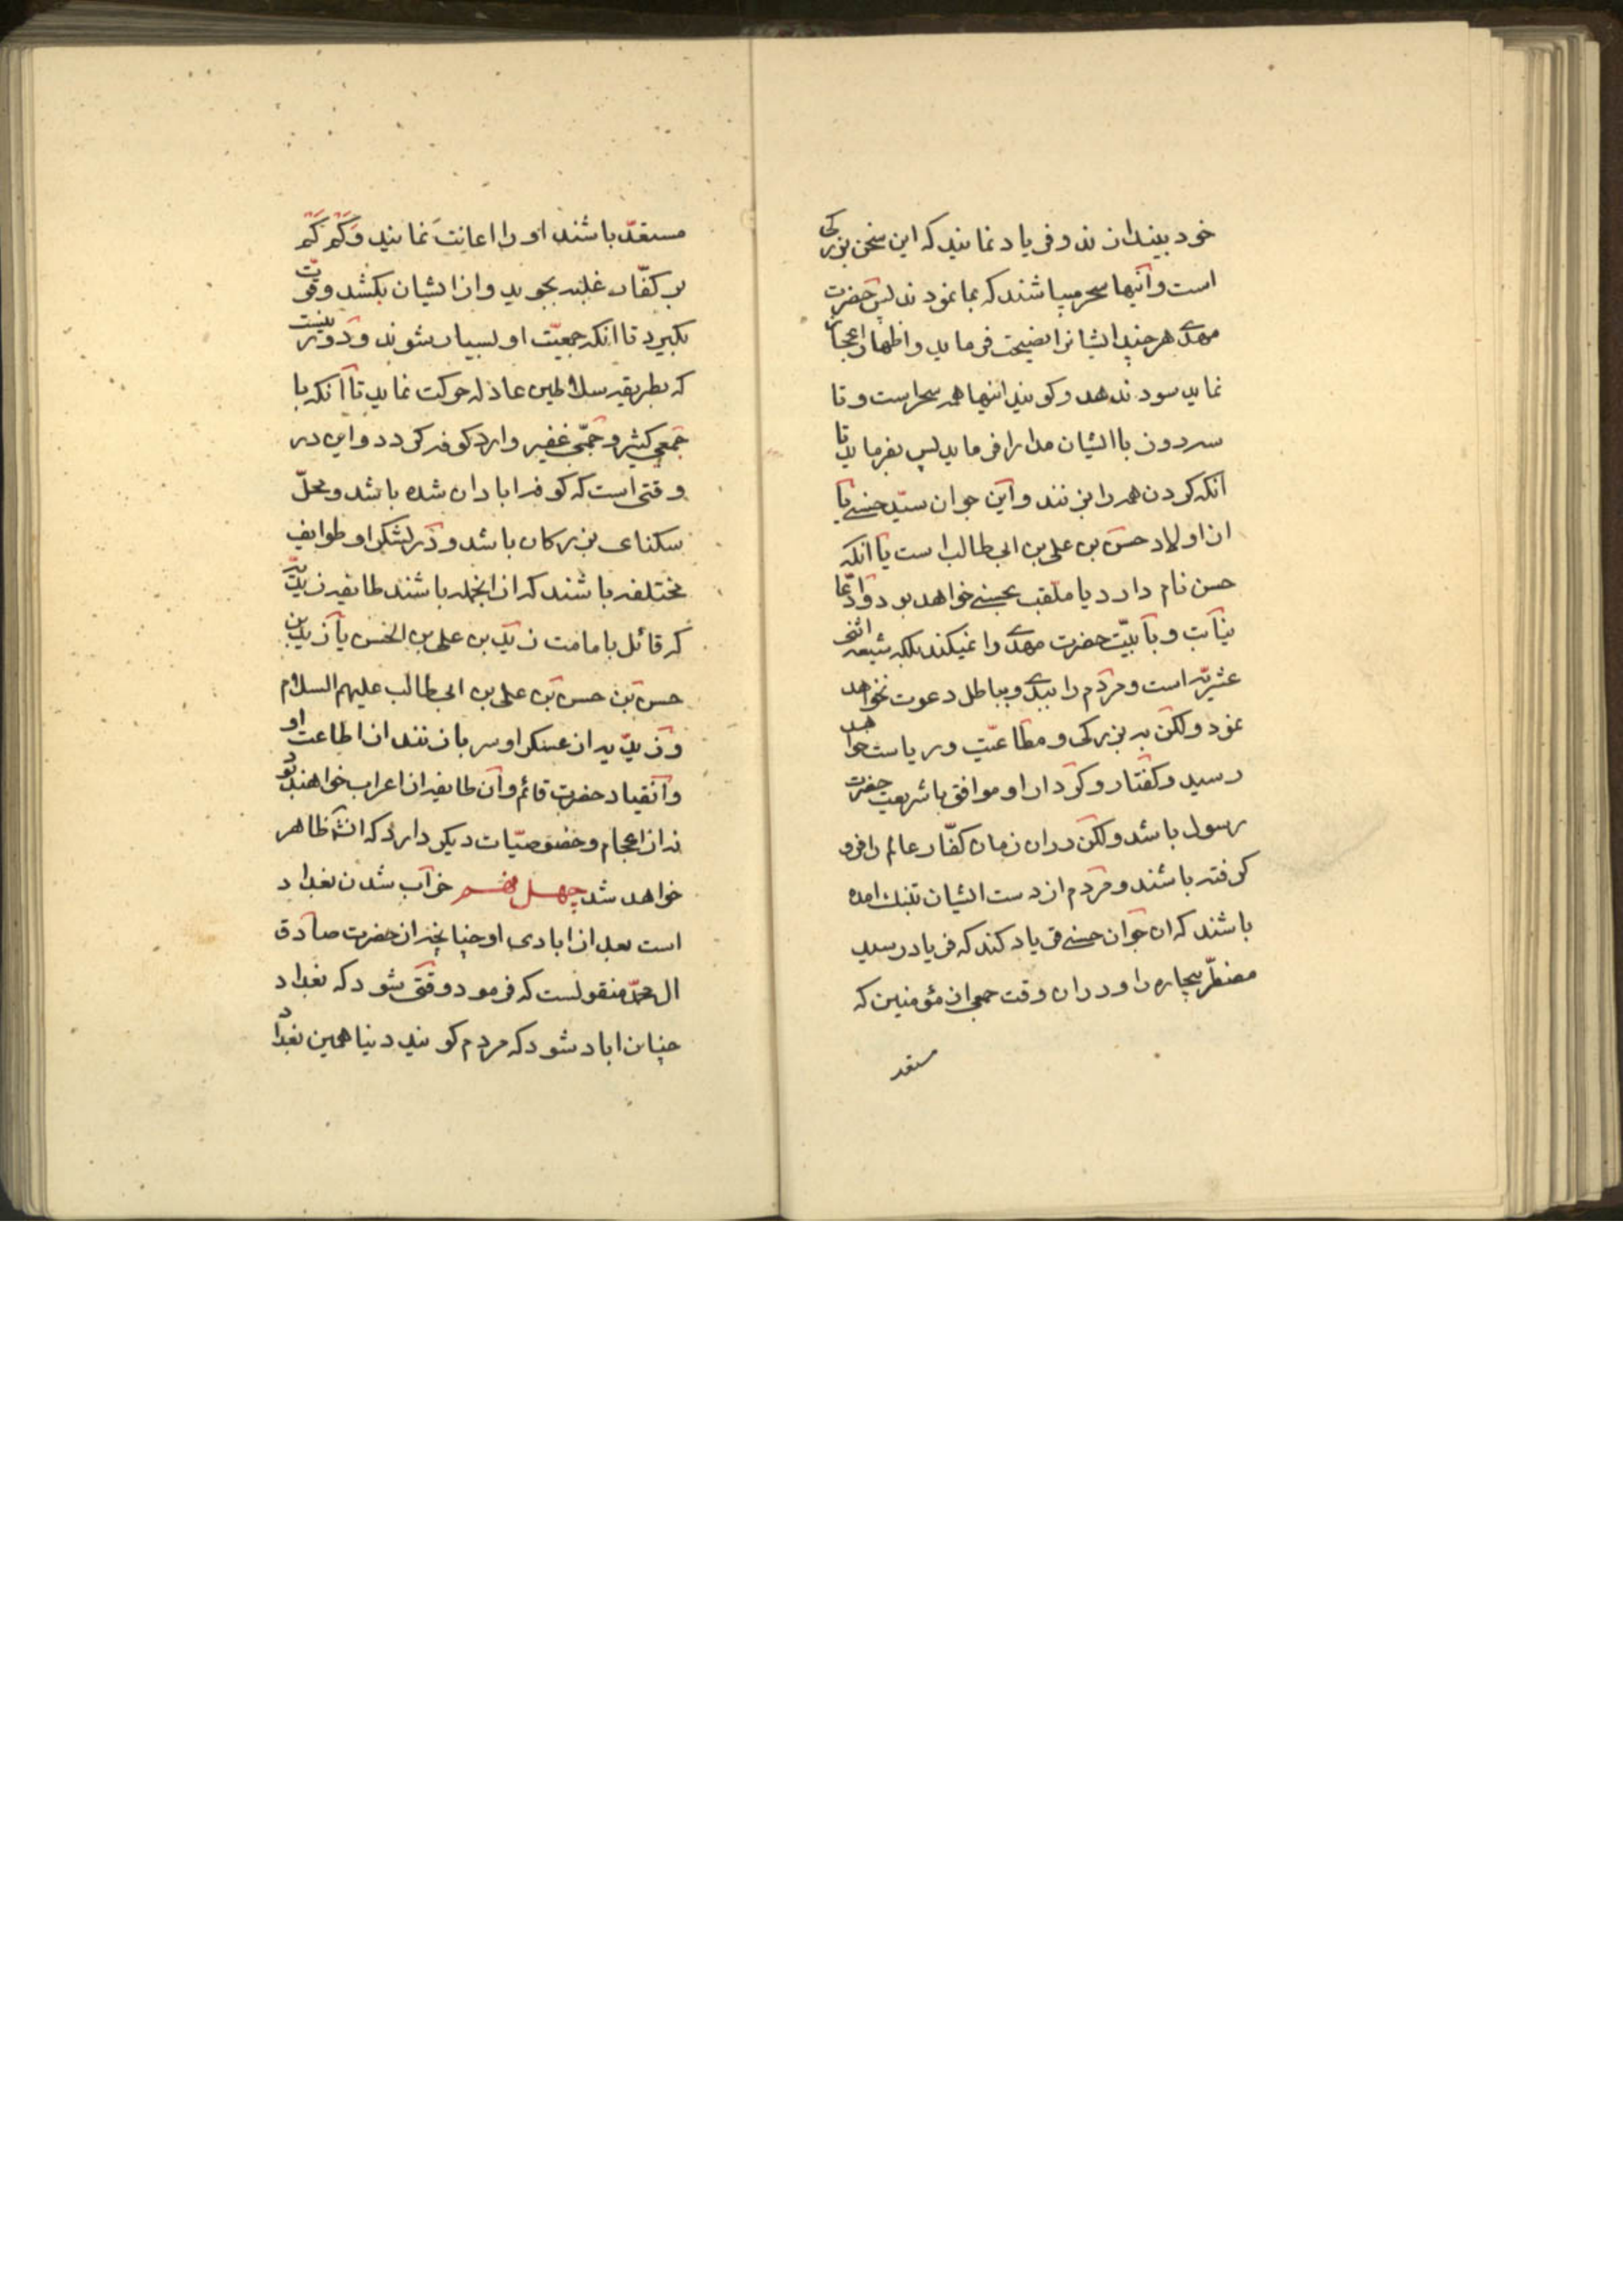 خود بیندازند و فریاد نمایند که این سخن بزرکی
است و آنیها سحر میباشند که بما نمودند پس حضرت
مهدی هر چند ایشانرا نصیحت فرماید و اظهار اعجاز
نماید سود ندهد و کویند اینها همه سحر است و تا
سه روز با ایشان مدارا فرماید پس بفرماید تا
آنکه کردن همه را بزنند و این جوان سیّد حسنی یا
از اولاد حسن بن علی بن ابی طالب است یا آنکه
حسن نام دارد یا ملقب بحسنی خواهد بود و ادّعا
نیابت و بابیّت حضرت مهدی را نمیکند بلکه شیعه اثنی
عشریّه است و مردم را ببدی و بباطل دعوت نخواهد
نمود ولکن به بزرکی و مطاعیّت و ریاست خواهد
رسید و کفتار و کردار او موافق با شریعت حضرت
رسول باشد ولکن در ان زمان کفّار عالم را فرو
کرفته باشند و مردم از دست ایشان بتنک امده
باشند که ان جوان حسنی فریاد کند که فریاد رسید
مضطرّ بیچاره را و در ان وقت جمعی از مؤمنین که
مستعد
مستعدّ باشند او را اعانت نمایند و کم کم
بر کفّار غلبه بجوید و از ایشان بکشد و قوّت
بکیرد تا انکه جمعیّت او بسیار شوند و دور نیست
که بطریقه سلاطین عادله حرکت نماید تا آنکه با
جمعی کثیر و جمّی غفیر وارد کوفه کردد و این در
وقتی است که کوفه ابادان شده باشد و محلّ
سکنای بزرکان باشد و در لشکر او طوایف
مختلفه باشند که از انجمله باشند طایفه زیدیّه
که قائل بامامت زید بن علی بن الحسین یا زید بن
حسن بن حسن بن علی بن ابی طالب علیهم السلام
و زیدیّه از عسکر او سر باز زنند از اطاعت او
و انقیاد حضرت قائم و آن طایفه از اعراب خواهند بود
نه از اعجام و خصوصیّات دیکر دارد که انشآ ظاهر
خواهد شد چهل خراب شدن بغداد
است بعد از ابادی او چنانچه از حضرت صادق
ال محمّد منقولست که فرمود وقتی شود که بغداد
چنان اباد شود که مردم کویند دنیا همین بغداد